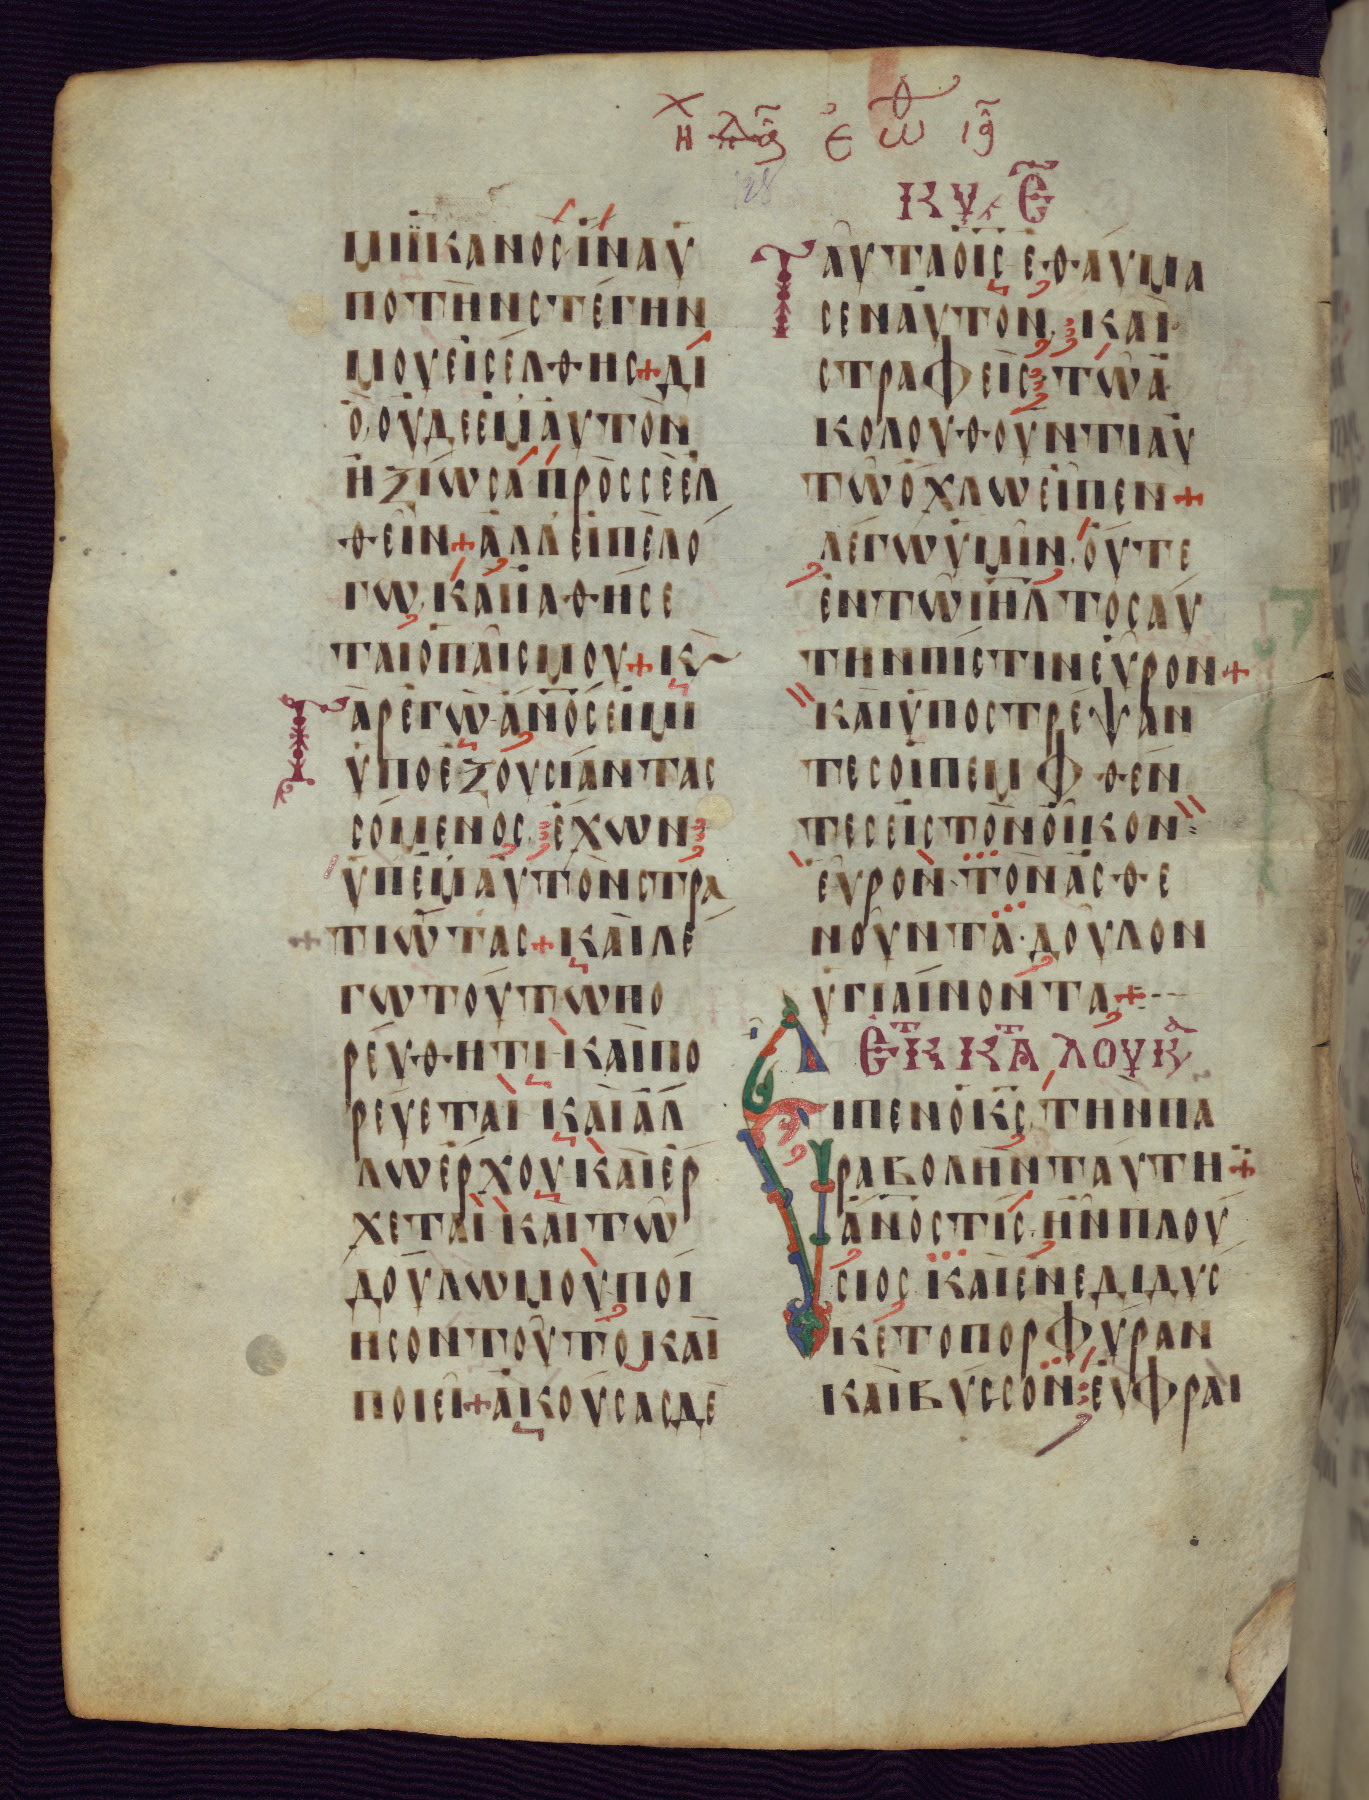 ΚΥ Ε
ΜΙΪΚΑΝΟΣΪΝΑΥ
ΠΟΤΗΝΣΤΕΓΗΝ
ΜΟΥΕΙΣΕΛΘΗΣ+ΔΙ
Ο,ΟΥΔΕΕΜΑΥΤΟΝ
ΗΞΙΩΣΑΠΡΟΣΣΕΕΛ
ΘΕΙΝ+ΑΛΛΕΙΠΕΛΟ
ΓΩ,ΚΑΙΙΑΘΗΣΕ
ΤΑΙΟΠΑΙΣΜΟΥ+Κ
ΓΑΡΕΓΩΑΝΟΣΕΙΜΙ
ΥΠΟΕΞΟΥΣΙΑΝΤΑΣ
ΣΟΜΕΝΟΣ,ΕΧΩΝ
ΥΠΕΜΑΥΤΟΝΣΤΡΑ
+ΤΙΩΤΑΣ+ΚΑΙΛΕ
ΓΩΤΟΥΤΩΠΟ
ΡΕΥΘΗΤΙ·ΚΑΙΠΟ
ΡΕΥΕΤΑΙ ΚΑΙΑΛ
ΛΩΕΡΧΟΥ·ΚΑΙΕΡ
ΧΕΤΑΙΚΑΙΤΩ
ΔΟΥΛΩΜΟΥ·ΠΟΙ
ΗΣΟΝΤΟΥΤΟ,ΚΑΙ
ΠΟΙΕΙ+ΑΚΟΥΣΑΣΔΕ
ΤΑΥΤΑΟΙΣ·ΕΘΑΥΜΑ
ΣΕΝΑΥΤΟΝ,ΚΑΙ
ΣΤΡΑΦΕΙΣ·ΤΩΑ
ΚΟΛΟΥΘΟΥΝΤΙΑΥ
ΤΩΟΧΛΩΕΙΠΕΝ+
ΛΕΓΩΥΜΙΝ,ΟΥΤΕ
ΕΝΤΩΙΗΛΤΟΣΑΥ
ΤΗΝΠΙΣΤΙΝΕΥΡΟΝ+
ΚΑΙΥΠΟΣΤΡΕΨΑΝ
ΤΕΣΟΙΠΕΜΦΘΕΝ
ΤΕΣΕΙΣΤΟΝΟΙΚΟΝ
ΕΥΡΟΝ·ΤΟΝΑΣΘΕ
ΝΟΥΝΤΑ·ΔΟΥΛΟΝ
ΥΓΙΑΙΝΟΝΤΑ+
ΕΚ ΚΤΑ ΛΟΥΚ
ΕΙΠΕΝΟΚΣ,ΤΗΝΠΑ
ΡΑΒΟΛΗΝΤΑΥΤΗ+
ΑΝΟΣΤΙΣ,ΗΝΠΛΟΥ
ΣΙΟΣ·ΚΑΙΕΝΕΔΙΔΥΣ
ΚΕΤΟΠΟΡΦΥΡΑΝ
ΚΑΙΒΥΣΣΟΝ·ΕΥΦΡΑΙ